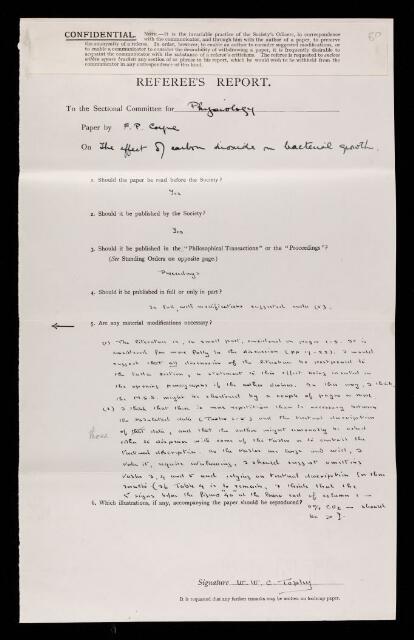 CONFIDENTIAL.
NOTE.—It is the invariable practice of the Society's Officers, in correspondence
with the communicator, and through him with the author of a paper, to preserve
the anonymity of a referee. In order, however, to enable an author to consider suggested modifications, or
to enable a communicator to consider the desirability of withdrawing a paper, it is frequently desirable to
acquaint the communicator with the substance of a referee's criticisms. The referee is requested to enclose
within square brackets any section of or phrase in his report, which he would wish to be withheld from the
communicator in any correspondence of this kind.
REFEREE'S REPORT.
To the Sectional Committee for Physiology
Paper by F. P. Coyne
On The effect of carbon dioxide on bacterial growth.
1. Should the paper be read before the Society?
Yes
2. Should it be published by the Society?
Yes
3. Should it be published in the "Philosophical Transactions" or the "Proceedings"?
(See Standing Orders on opposite page.)
Proceedings
4. Should it be published in full or only in part?
In full, with modifications suggested under (5).
5. Are any material modifications necessary?
(1) The literature is, in small part, mentioned on pages 1-3. It is
considered far more fully in the discussion (pp 17-23). I would
suggest that any discussion of the literature be postponed to
the latter section, a statement to this effect being inserted in
the opening paragraphs if the author desires. In this way, I think,
the M.S.S. might be shortened by a couple of pages or more
(2) I think that there is more repetition than is necessary between
the tabulated data and the textual description
of that data, and that the author might reasonably be asked
either to dispense with some of the tables or to curtail the
textual description. As the tables are large and will, I
take it, require
tables 2, 4 and 5 and relying on textual description for these
results (If Table 4 is to remain, I think that the
6. Which illustrations, if any, accompanying the paper should be reproduced?
0% CO2 — should
be
Signature W. W. C. Topley
It is requested that any further remarks may be written on foolscap paper.